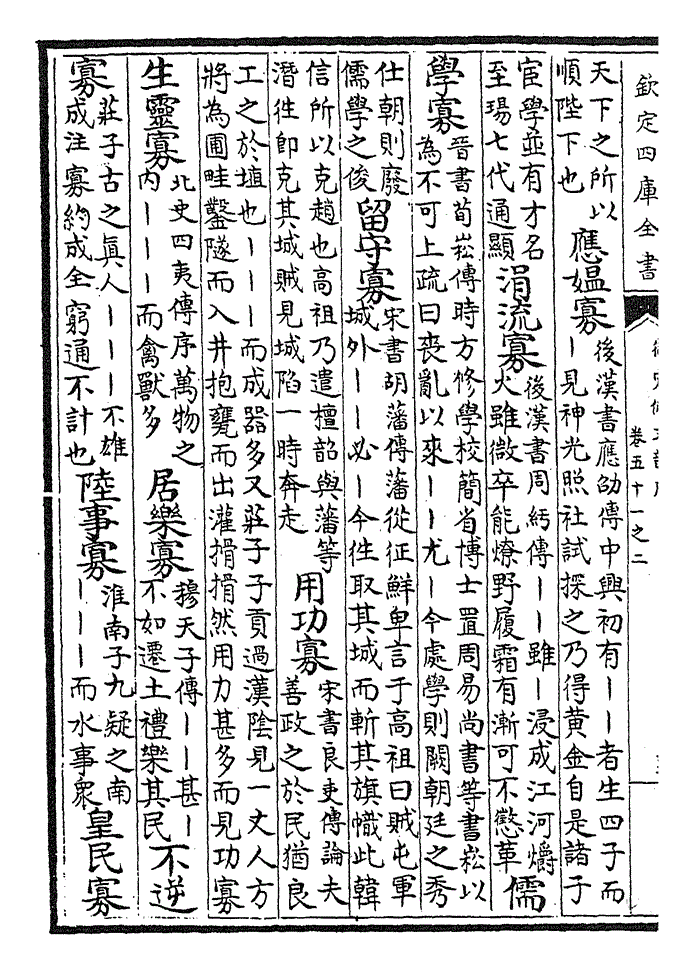 欽定四庫全書
卷五十一之二
天下之所以
順陛下也
應媼寡
後漢書應劭傳中興初有丨丨者生四子而
丨見神光照社試探之乃得黄金自是諸子
宦學並有才名
至瑒七代通顯
涓流寡
後漢書周紆傳丨丨雖丨浸成江河爝
火雖微卒能燎野履霜有漸可不懲革
儒
學寡
晉書荀崧傳時方修學校簡省博士置周易尚書等書崧以
為不可上疏曰喪亂以來丨丨尤丨今處學則闕朝廷之秀
仕朝則廢
儒學之俊
留守寡
宋書胡藩傳藩從征鮮卑言于高祖曰賊屯軍
城外丨丨必丨今徃取其城而斬其旗幟此韓
信所以克趙也高祖乃遣檀韶與藩等
潛徃即克其城賊見城陷一時奔走
用功寡
宋書良吏傳論夫
善政之於民猶良
工之於埴也丨丨丨而成器多又莊子子貢過漢陰見一丈人方
將為圃畦鑿隧而入井抱甕而出灌搰搰然用力甚多而見功寡
生靈寡
北史四夷傳序萬物之
内丨丨丨而禽獸多
居樂寡
穆天子傳丨丨甚丨
不如遷土禮樂其民
不逆
寡
莊子古之真人丨丨丨不雄
成注寡約成全窮通不計也
陸事寡
淮南子九疑之南
丨丨丨而水事眾
皇民寡